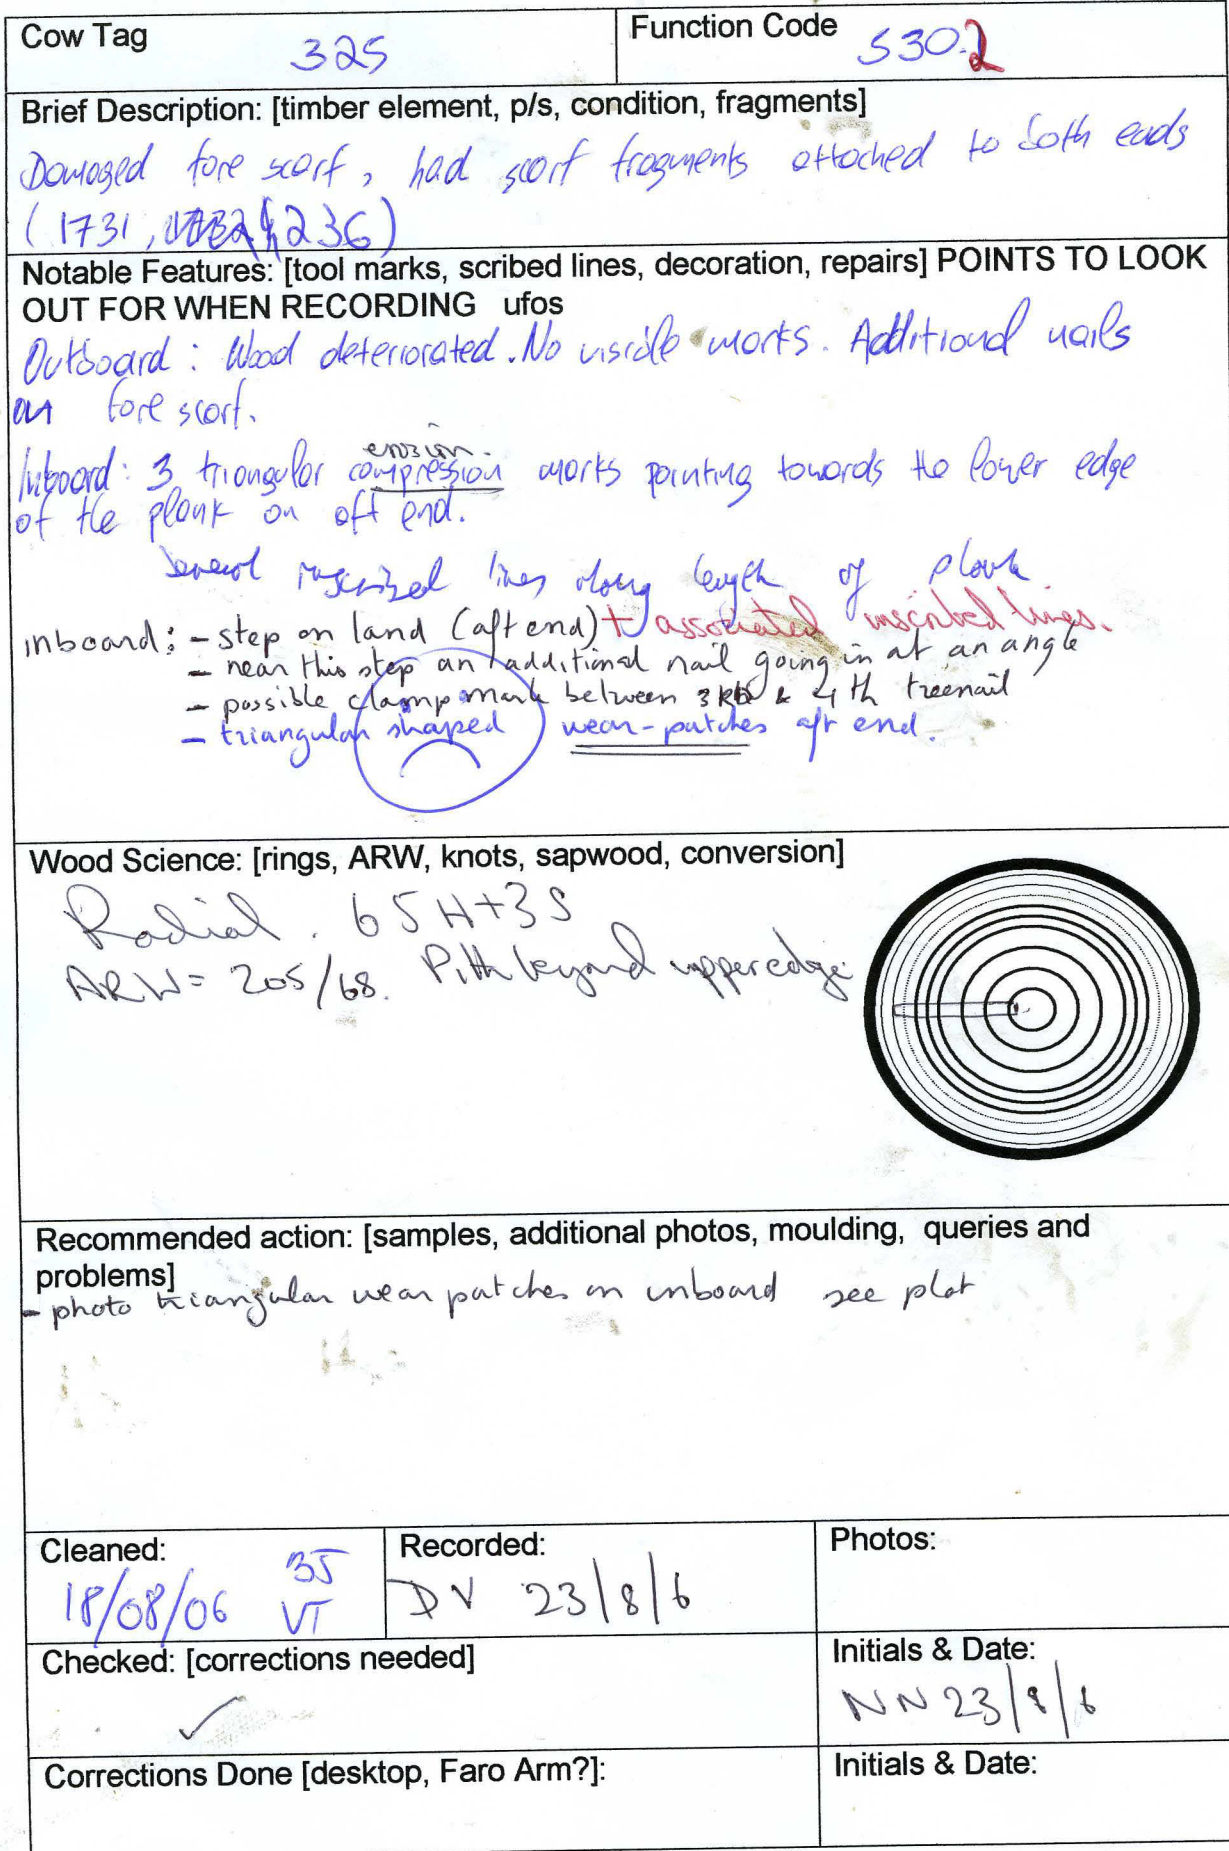 Cow Tag 325
Function Code S30.2
Brief Description: [timber element, p/s, condition, fragments]
Damaged fore scarf, had scarf fragments attached to both ends
(1731, 236)
Notable Features: [tool marks, scribed lines, decoration, repairs] POINTS TO LOOK
OUT FOR WHEN RECORDING ufos
Outboard: Wood deteriorated. No visible marks. Additional nails
on fore scarf.
erosion.
Inboard: 3 triangular compression marks pointing towards the lower edge
of the plank on aft end.
Several inscribed lines along length of plank
inboard: - step on land (aft end) + associated inscribed lines.
- near this step an additional nail going in at an angle
- possible clamp mark between 3RD & 4th treenail
- triangular shaped wear-patches aft end.
Wood Science: [rings, ARW, knots, sapwood, conversion]
Radial. 65H+3S
ARW= 205/68. Pith beyond upper edge
Recommended action: [samples, additional photos, moulding, queries and
problems]
- photo triangular wear patches on inboard see plot
Cleaned:
18/08/06
VT
Recorded:
DV 23/8/6
Photos:
Checked: [corrections needed]
✓
Initials & Date:
NN 23/8/6
Corrections Done [desktop, Faro Arm?]:
Initials & Date: